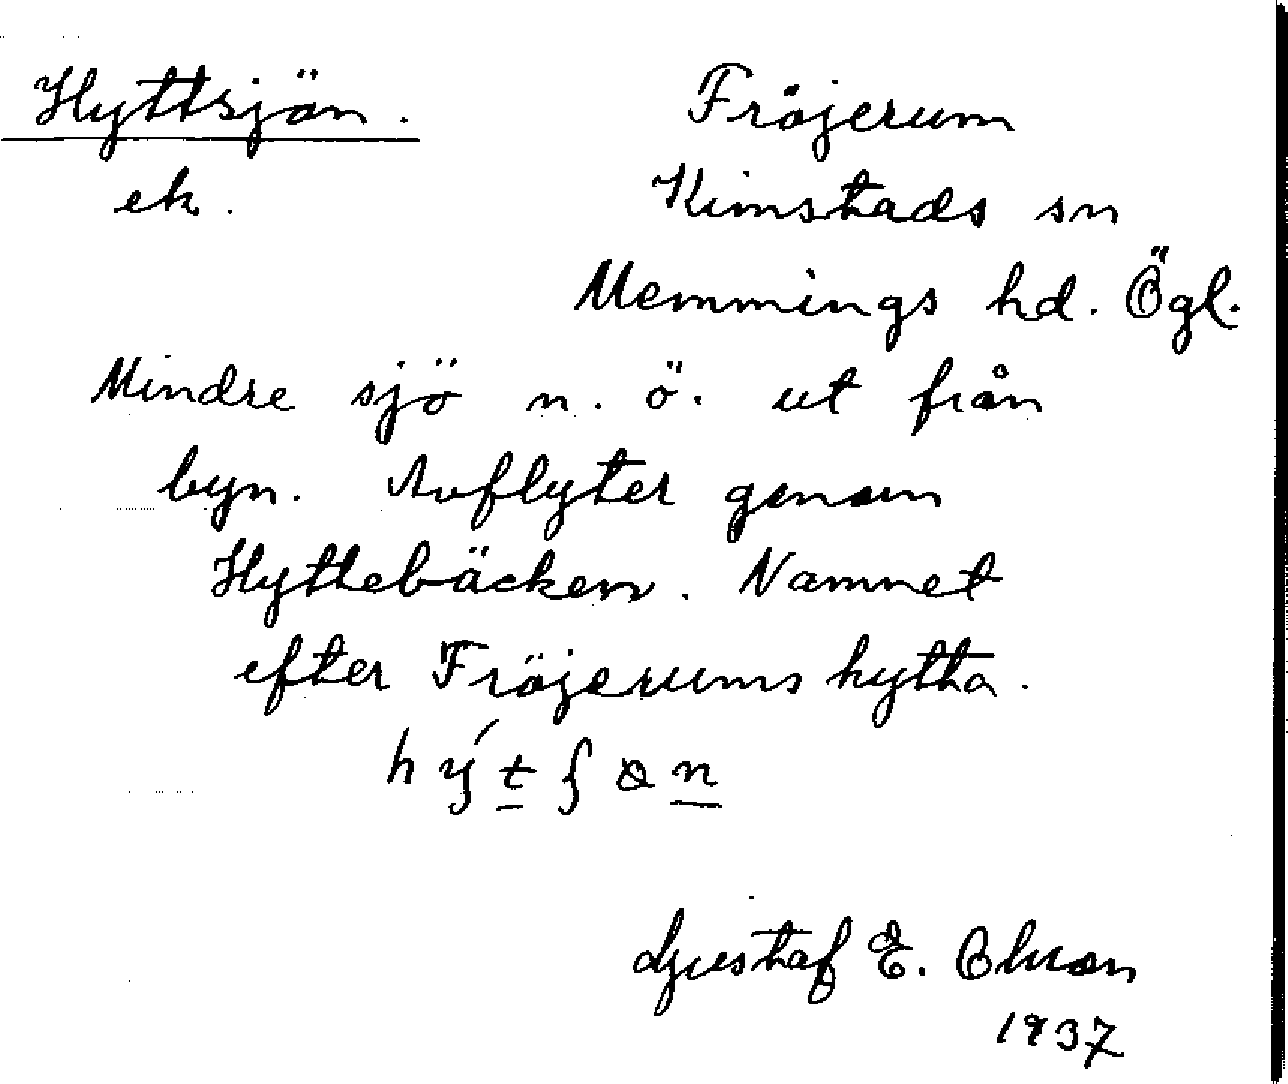 Hyttsjön. Fröjerum
ek. Kimstads sn
Memmings hd. Ögl.
Mindre sjö n. ö. ut från
byn. Avflyter genom
Hyttebäcken. Namnet
efter Fröjerums hytta.
Gustaf E.
1937